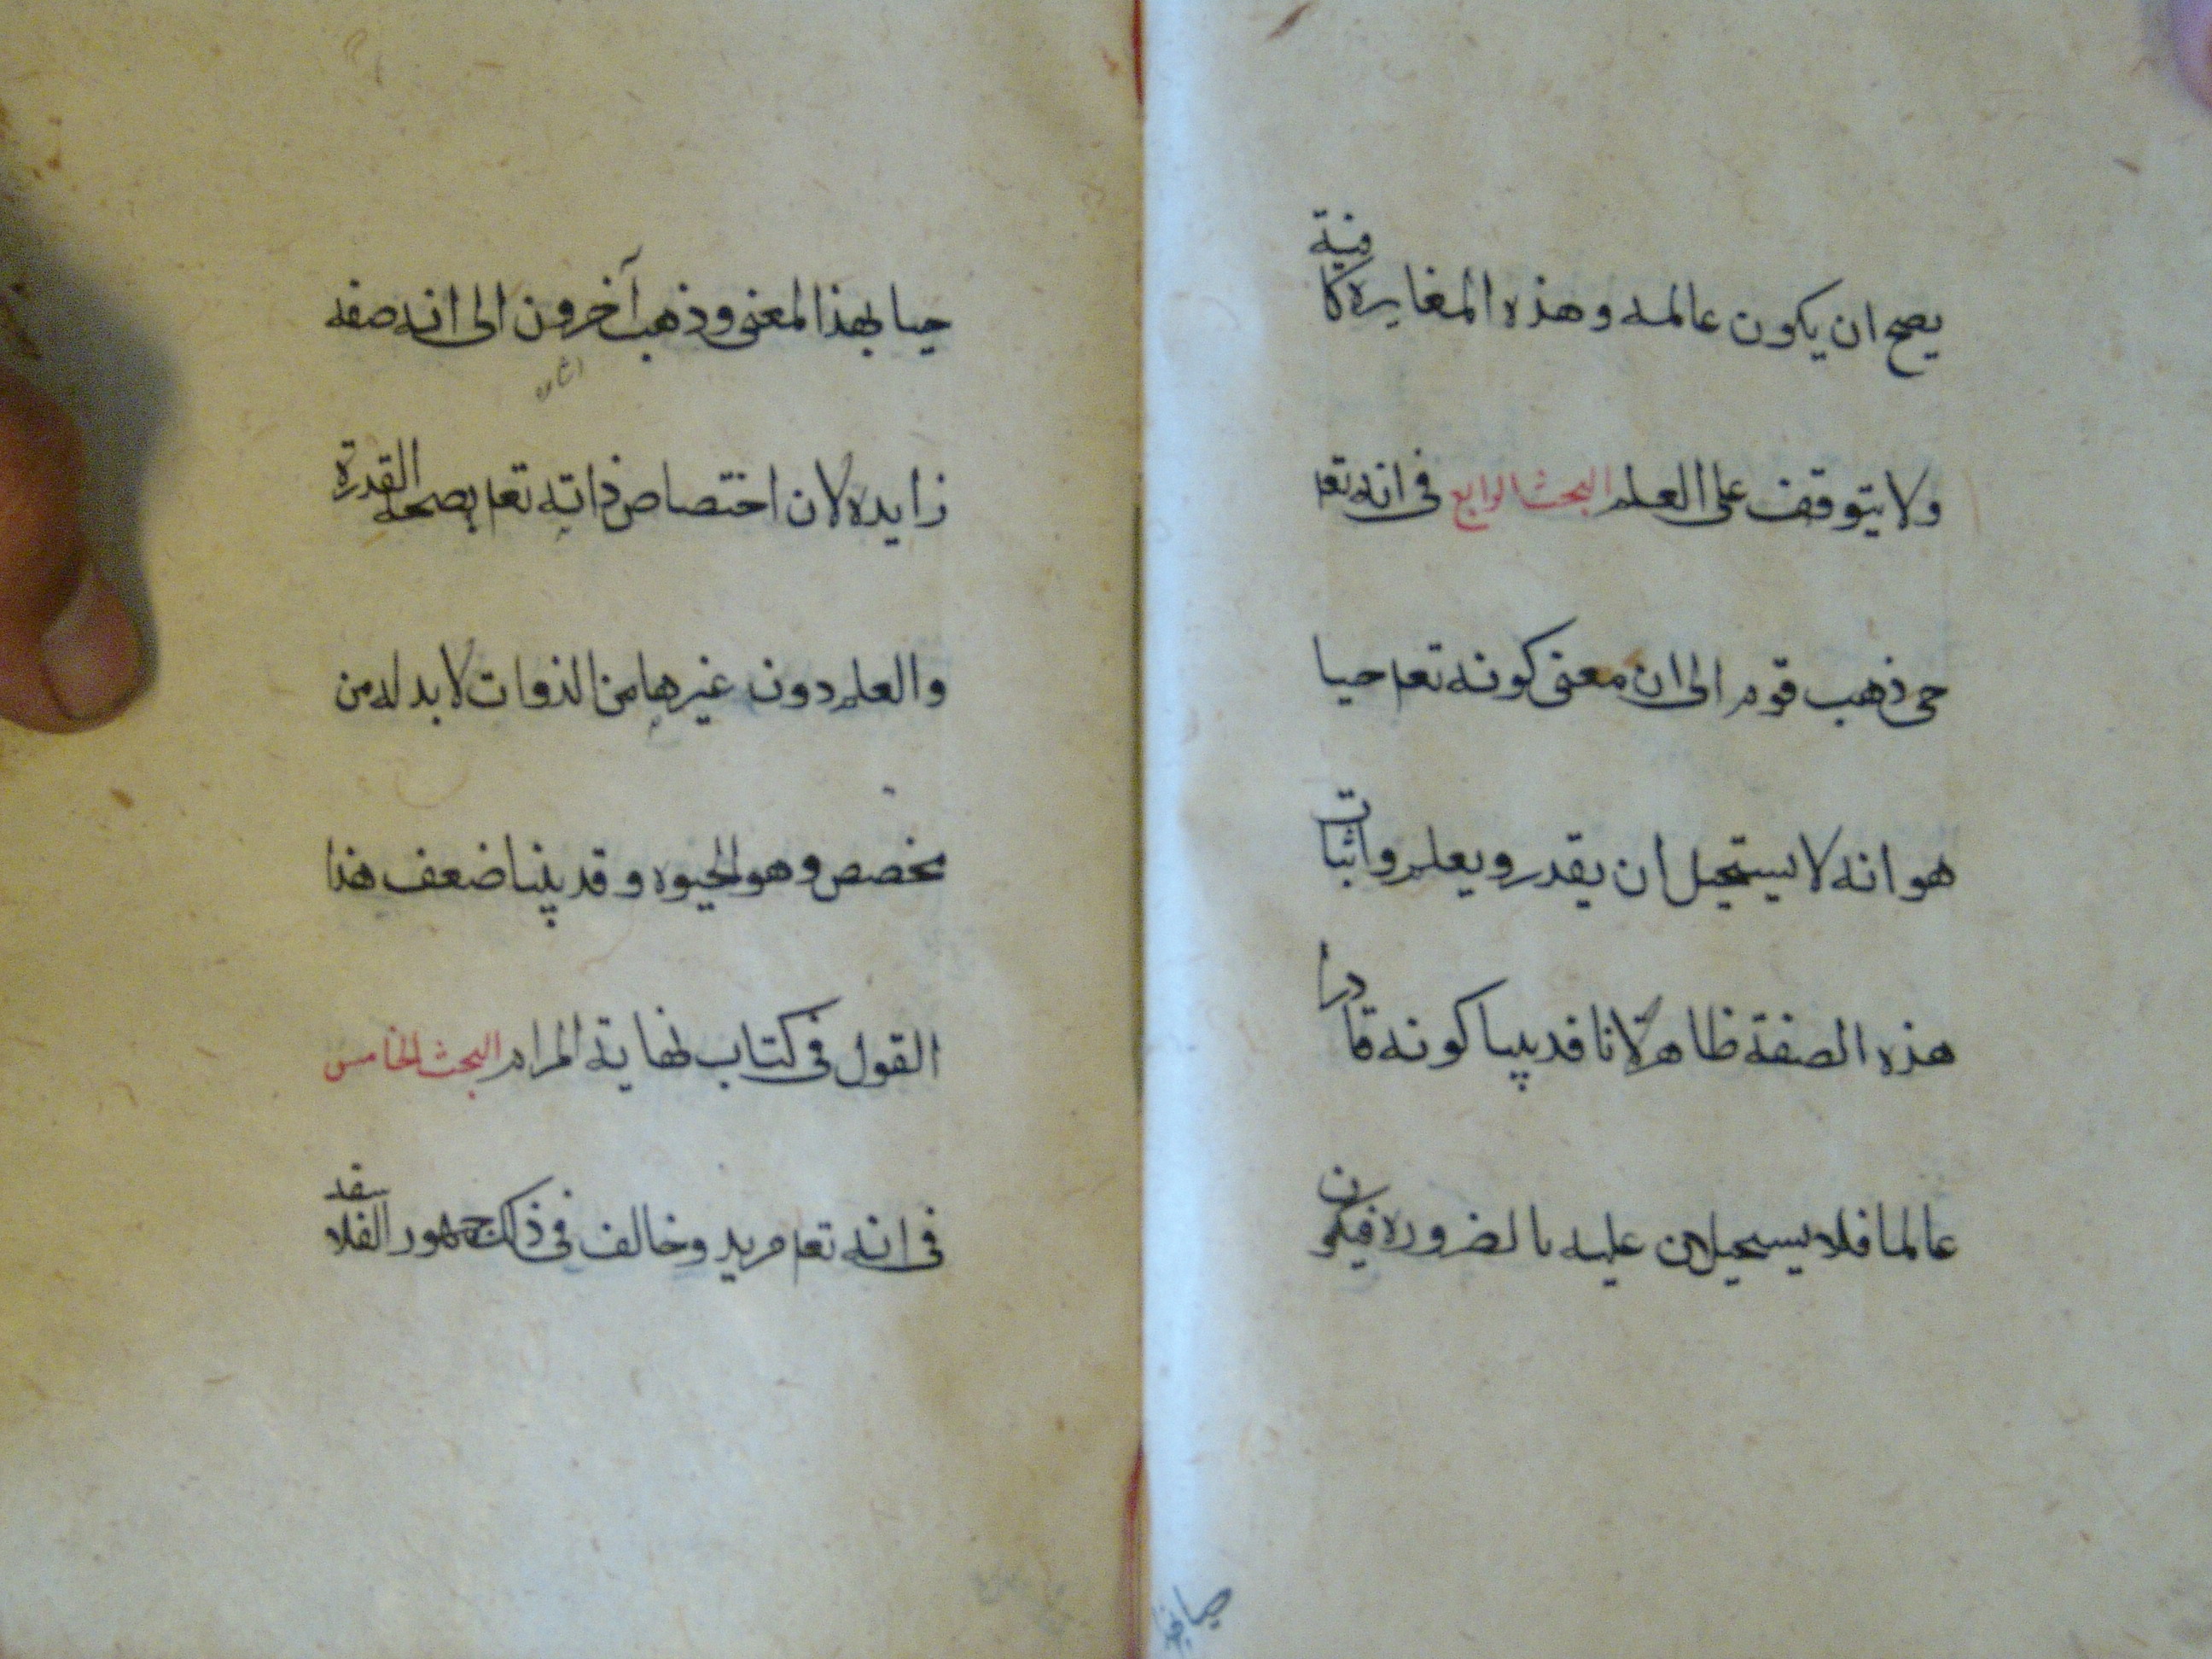 يصح ان يكون عالمه وهذه المغايره كافية
ولا يتوقف على العلم البحث الرابع فى انه تعم
حى ذهب قوم الى ان معنى كونه تعم حيا
هو انه لا يستحيل ان يقدر ويعلم واثبات
هذه الصفة ظاهر لانا قد بينا كونه قادرا
عالما فلا يستحيلان عليه بالضروره فيكون
حيا بهذا المعنى وذهب آخرون الى انه صفه
زايده لان اختصاص ذاته تعم بصحه القدرة
والعلم دون غيرها من الذوات لا بد له من
مخصص وهو الحيوه وقد بينا ضعف هذا
القول فى كتاب نهاية المرام البحث الخامس
فى انه تعم مريد وخالف فى ذلك جمهور الفلا